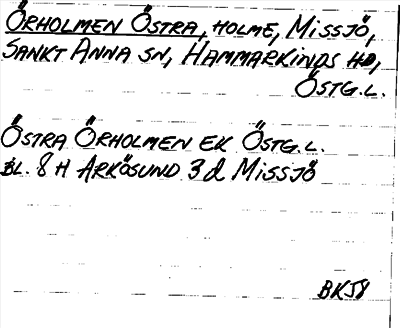 ÖRHOLMEN ÖSTRA, HOLME, MISSJÖ,
SANKT ANNA SN, HAMMARKINDS HD,
ÖSTG.L.
ÖSTRA ÖRHOLMEN EK ÖSTG.L.
BL. 8 H ARKÖSUND 3 d MISSJÖ
BKJ8